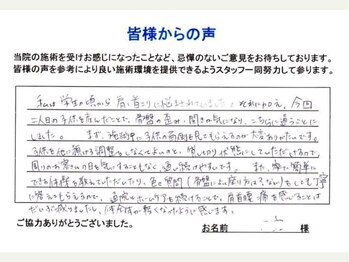 皆様からの声
当院の施術を受けお感じになったことなど、忌憚のないご意見をお待ちしております。
皆様の声を参考により良い施術環境を提供できるようスタッフ一同努力して参ります。
私は学生の頃から肩、首こりに悩まされていました。それに加え、今回
二人目の子供を産んだことで、骨盤の歪み・開きの気になり、こちらに通うことに
しました。まず、施術中に子供の面倒を見てもらえるのが大変ありがたいです。
子供を他に預ける調整をしなくてもよいのと、貸し切り状態にしていただけるので、
周りのお客さんの目を気にすることもなく通い続けれています。また、家で簡単に
できる体操を教えていただいたり、色々質問(骨盤によい座り方は?など)をしても丁寧
に答えてもらえるので、通院とホームケアを続けることで、肩首腰の痛を感じることは
だいぶ減りましたし、体全体が軽くなったように感じます。
ご協力ありがとうございました。
お名前 様